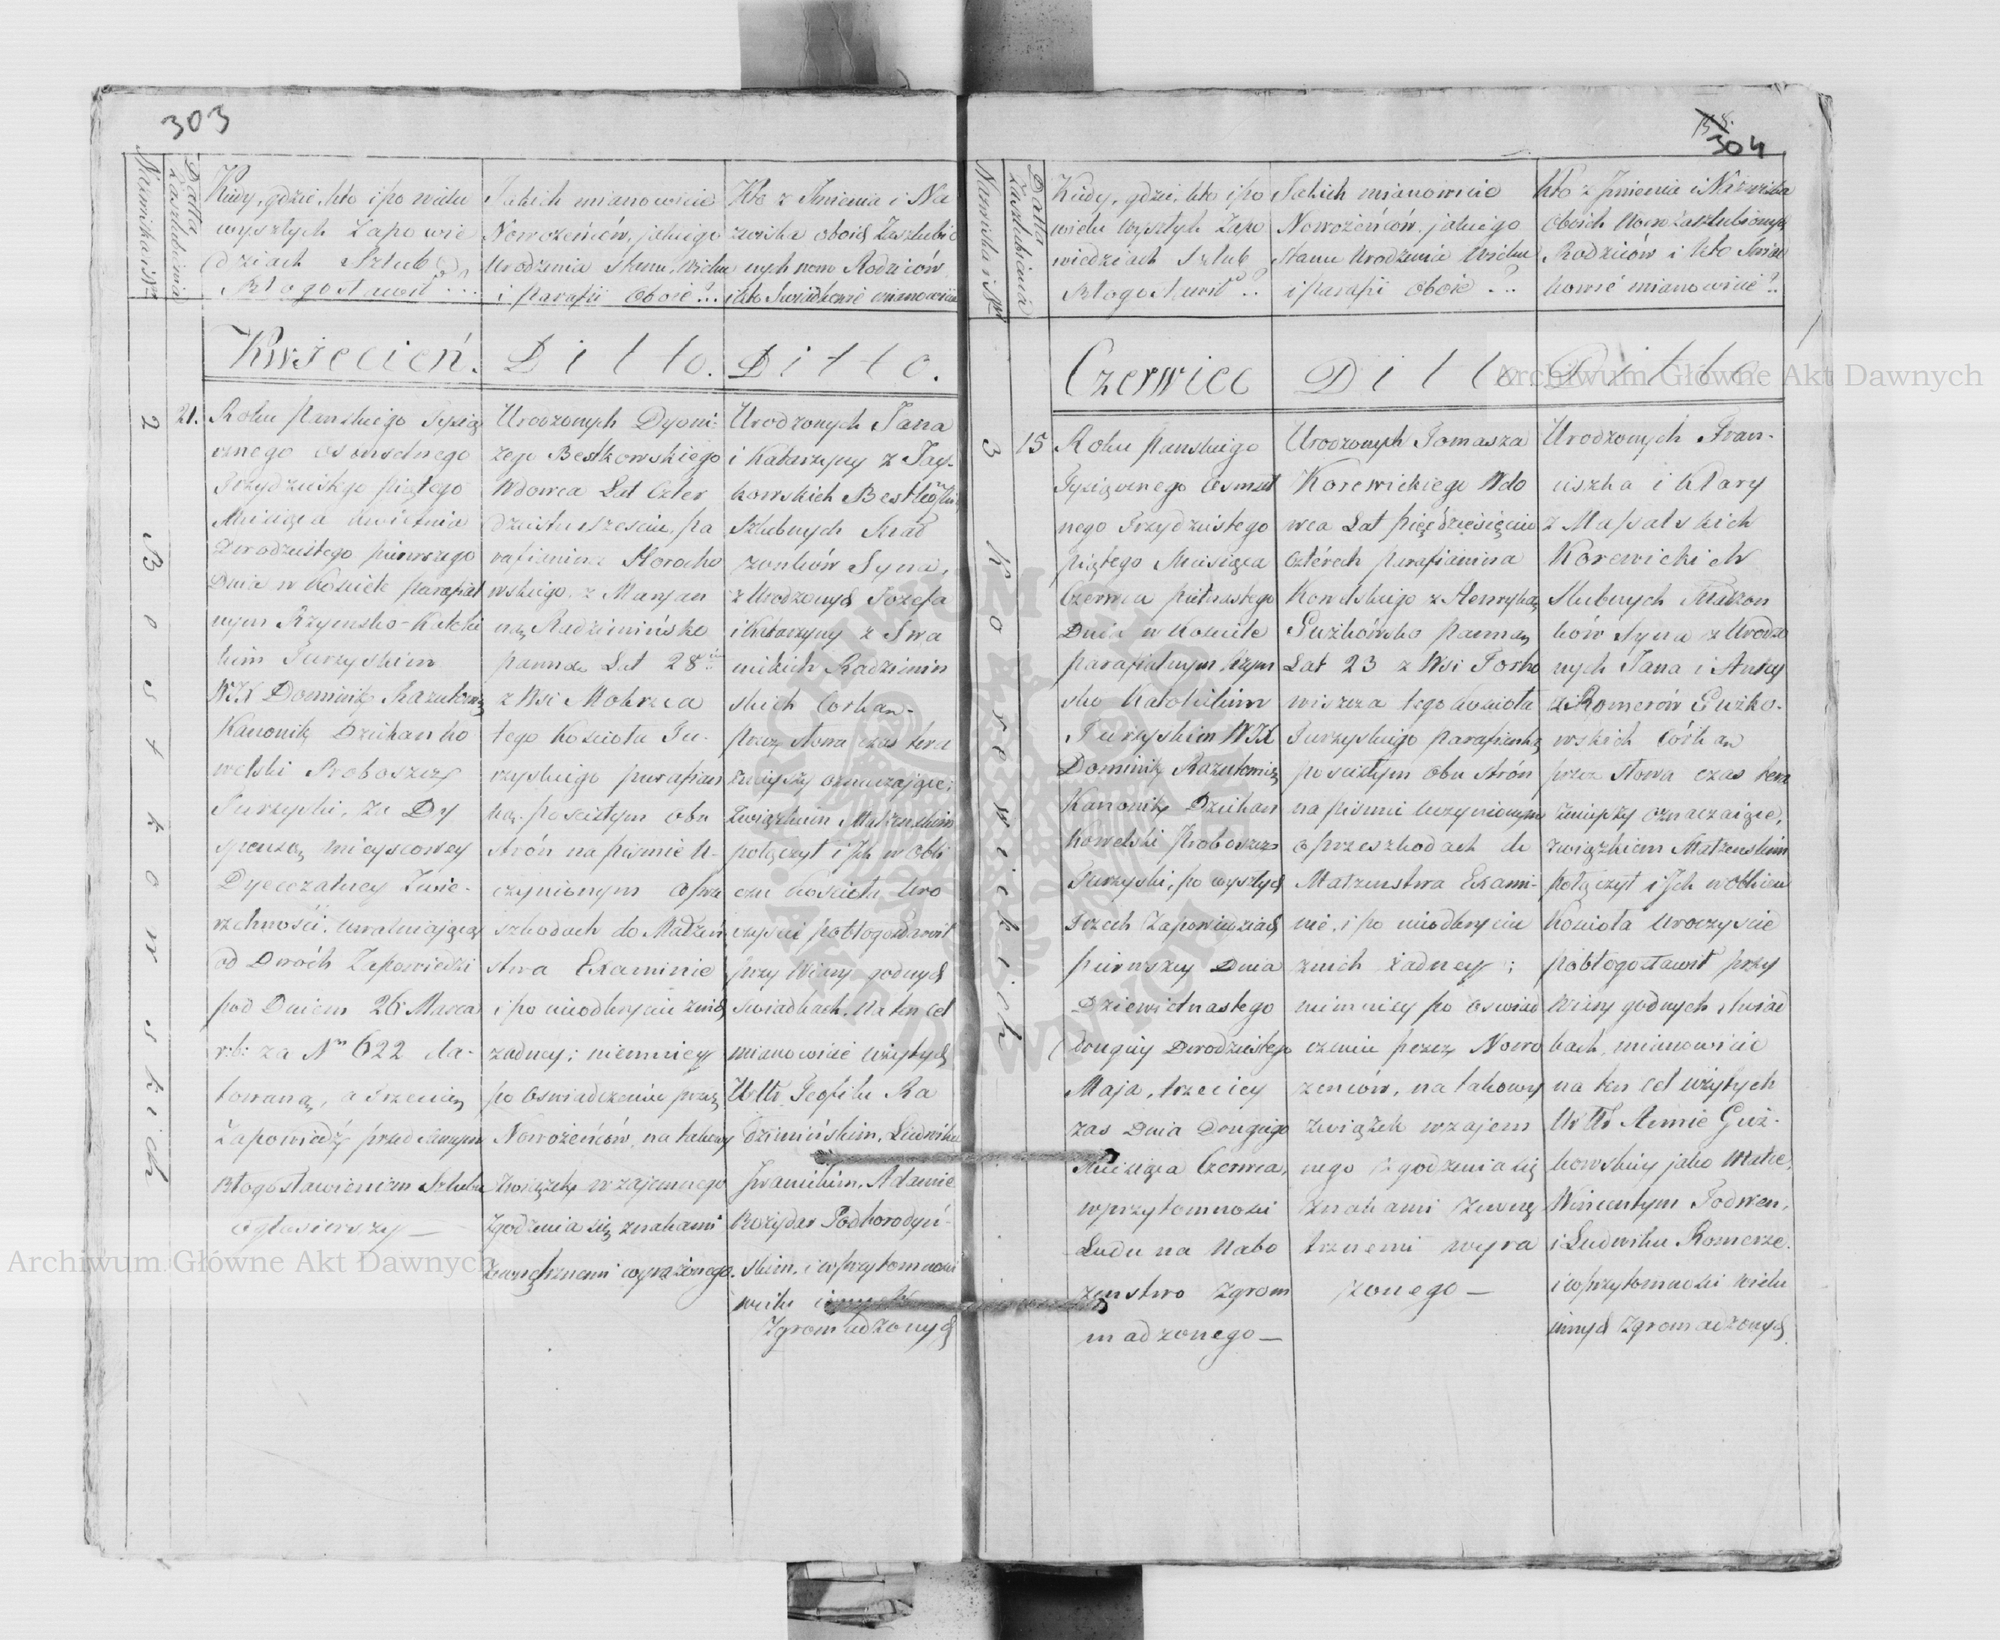 303
Numerika i Nra
Datta Zaszlubienia
Kiedy, gdzie, kto i po wielu
wyszłych Zapowie
dziach Szlub
Błogosławił...
Jakich mianowicie
Nowożeńców, jakiego
Urodzenia Stanu, Wieku
i parafii Oboie?..
Kto z Imienia i Na
zwiska oboich Zaszlubio
nych now Rodziców
i kto Swiadkowie mianowicie
Kwiecień.
Ditto.
Ditto.
2
21.
Bestkowskich
Roku Panskiego Tysiąc
cznego osmsetnego
Trzydziestego piątego
Miesiąca kwietnia
Dwodziestego pierwszego
Dnia w kościele parafial
nym Rzymsko-Katolic
kim Turzyskim
WJX Dominik Kazutowicz
Kanonik Dziekan ko
welski Proboszcz
Turzyski, za Dy
spensą mieyscowey
Dyecezalney Zwie-
rzchności, uwalniającą
od Dwóch Zapowiedzi
pod Dniem 26 Marca
r:b: za Nm 622 da-
towaną, a Trzecią
Zapowiedź przed samym
Błogosławieniem Szlubu
Ogłosiwszy—
Urodzonych Dyoni-
zego Bestkowskiego
Wdowca Lat Czter
dziestu szesciu, pa
rafianina Horocho
wskiego, z Maryan
ną Radzimińską
panną Lat 28
z Wsi Mokrca
tego Kościoła Tu-
rzyskiego parafian
ką, po scisłym obu
strón na piśmie U-
czynionym o prze
szkodach do Małżeń
stwa Examinie
i po nieodkryciu znich
żadney; niemniey
po Oświadczeniu przez
Nowożeńców, na takowy
Związek wzajemnego
zgodzenia się znakami
zewnętrznemi wyrażonego.
Urodzonych Jana
i Katarzyny z Jaź-
kowskich Bestkowskich
Szlubnych Małż
żonków Syna,
z Urodzonych Józefa
i Katarzyny z Iwa
nickich Radzimin
skich Corkan-
przez słowa czas tera
znieyszy oznaczające,
Związkiem Małżenskim
połączył i Ich w Obli
czu Kościoła Uro
czyście pobłogosławił
przy Wiary godnych
swiadkach, na ten cel
mianowicie użytych
UUr Teofilu Ra
dzimińskim, Ludwiku
Iwanickim, Adamie
Bożydar Podhorodyń-
skim, i w przytomności
wielu innych
Zgromadzonych
304
Numerika i Nra
Datta Zaszlubienia
Kiedy, gdzie, kto i po
wielu wyszłych Zapo
wiedziach Szlub
Błogosławił?..
Jakich mianowicie
Nowożeńców, jakiego
Stanu Urodzenia Wieku
i parafii oboie?..
kto z Imienia i Nazwiska
Oboich Now Zaszlubionych
Rodziców i kto Swiad
kowie mianowicie?..
Czerwiec
Ditto
Ditto
3
15
Korewickich
Roku Panskiego
Tysiącznego Osmset
nego Trzydziestego
piątego Miesiąca
Czerwca piętnastego
Dnia w Kosciele
parafialnym Rzym
sko Katolickim
Turzyskim WJX
Dominik Kazutowicz
Kanonik Dziekan
Kowelski Proboszcz
Turzyski, po wyszłych
Trzech Zapowiedziach
pierwszey Dnia
Dziewiętnastego
Drugiey Dwodziestego
Maja, trzeciey
zas Dnia Drugiego
Miesiąca Czerwca,
w przytomności
Ludu na Nabo
żenstwo Zgrom
madzonego—
Urodzonych Tomasza
Korewickiego Wdo
wca Lat pięćdziesięciu
cztérech parafianina
Kowelskiego z Henryką
Guzkówską panną
Lat 23 z Wsi Torho
wiszcza tego kościoła
Turzyskiego parafianką
po scisłym Obu strón
na pismie Uczynionym
o przeszkodach do
Małzenstwa Exami-
nie, i po nieodkryciu
znich żadney;
niemniey po oswiad
czeniu przez Nowo
żeńców, na takowy
związek wzajem
nego zgodzenia się
znakami zewnę
trznemi wyra
żonego—
Urodzonych Fran-
ciszka i Klary
z Masalskich
Korewickich
Slubnych Małżon
ków Syna z Urodzo
nych Jana i Anny
z Romerów Guzko-
wskich Córkan
przez słowa czas tera
znieyszy oznaczaiące,
związkiem Małzenskim
połączył i Ich w Obliczu
Kościoła Uroczyscie
pobłogosławił przy
Wiary godnych Swiad
kach, mianowicie
na ten cel użytych
UUr Annie Guz-
kowskiey jako Matce,
Wincentym Podwen,
i Ludwiku Romerze.
i w przytomności wielu
innych Zgromadzonych
Archiwum Główne Akt Dawnych
Archiwum Główne Akt Dawnych